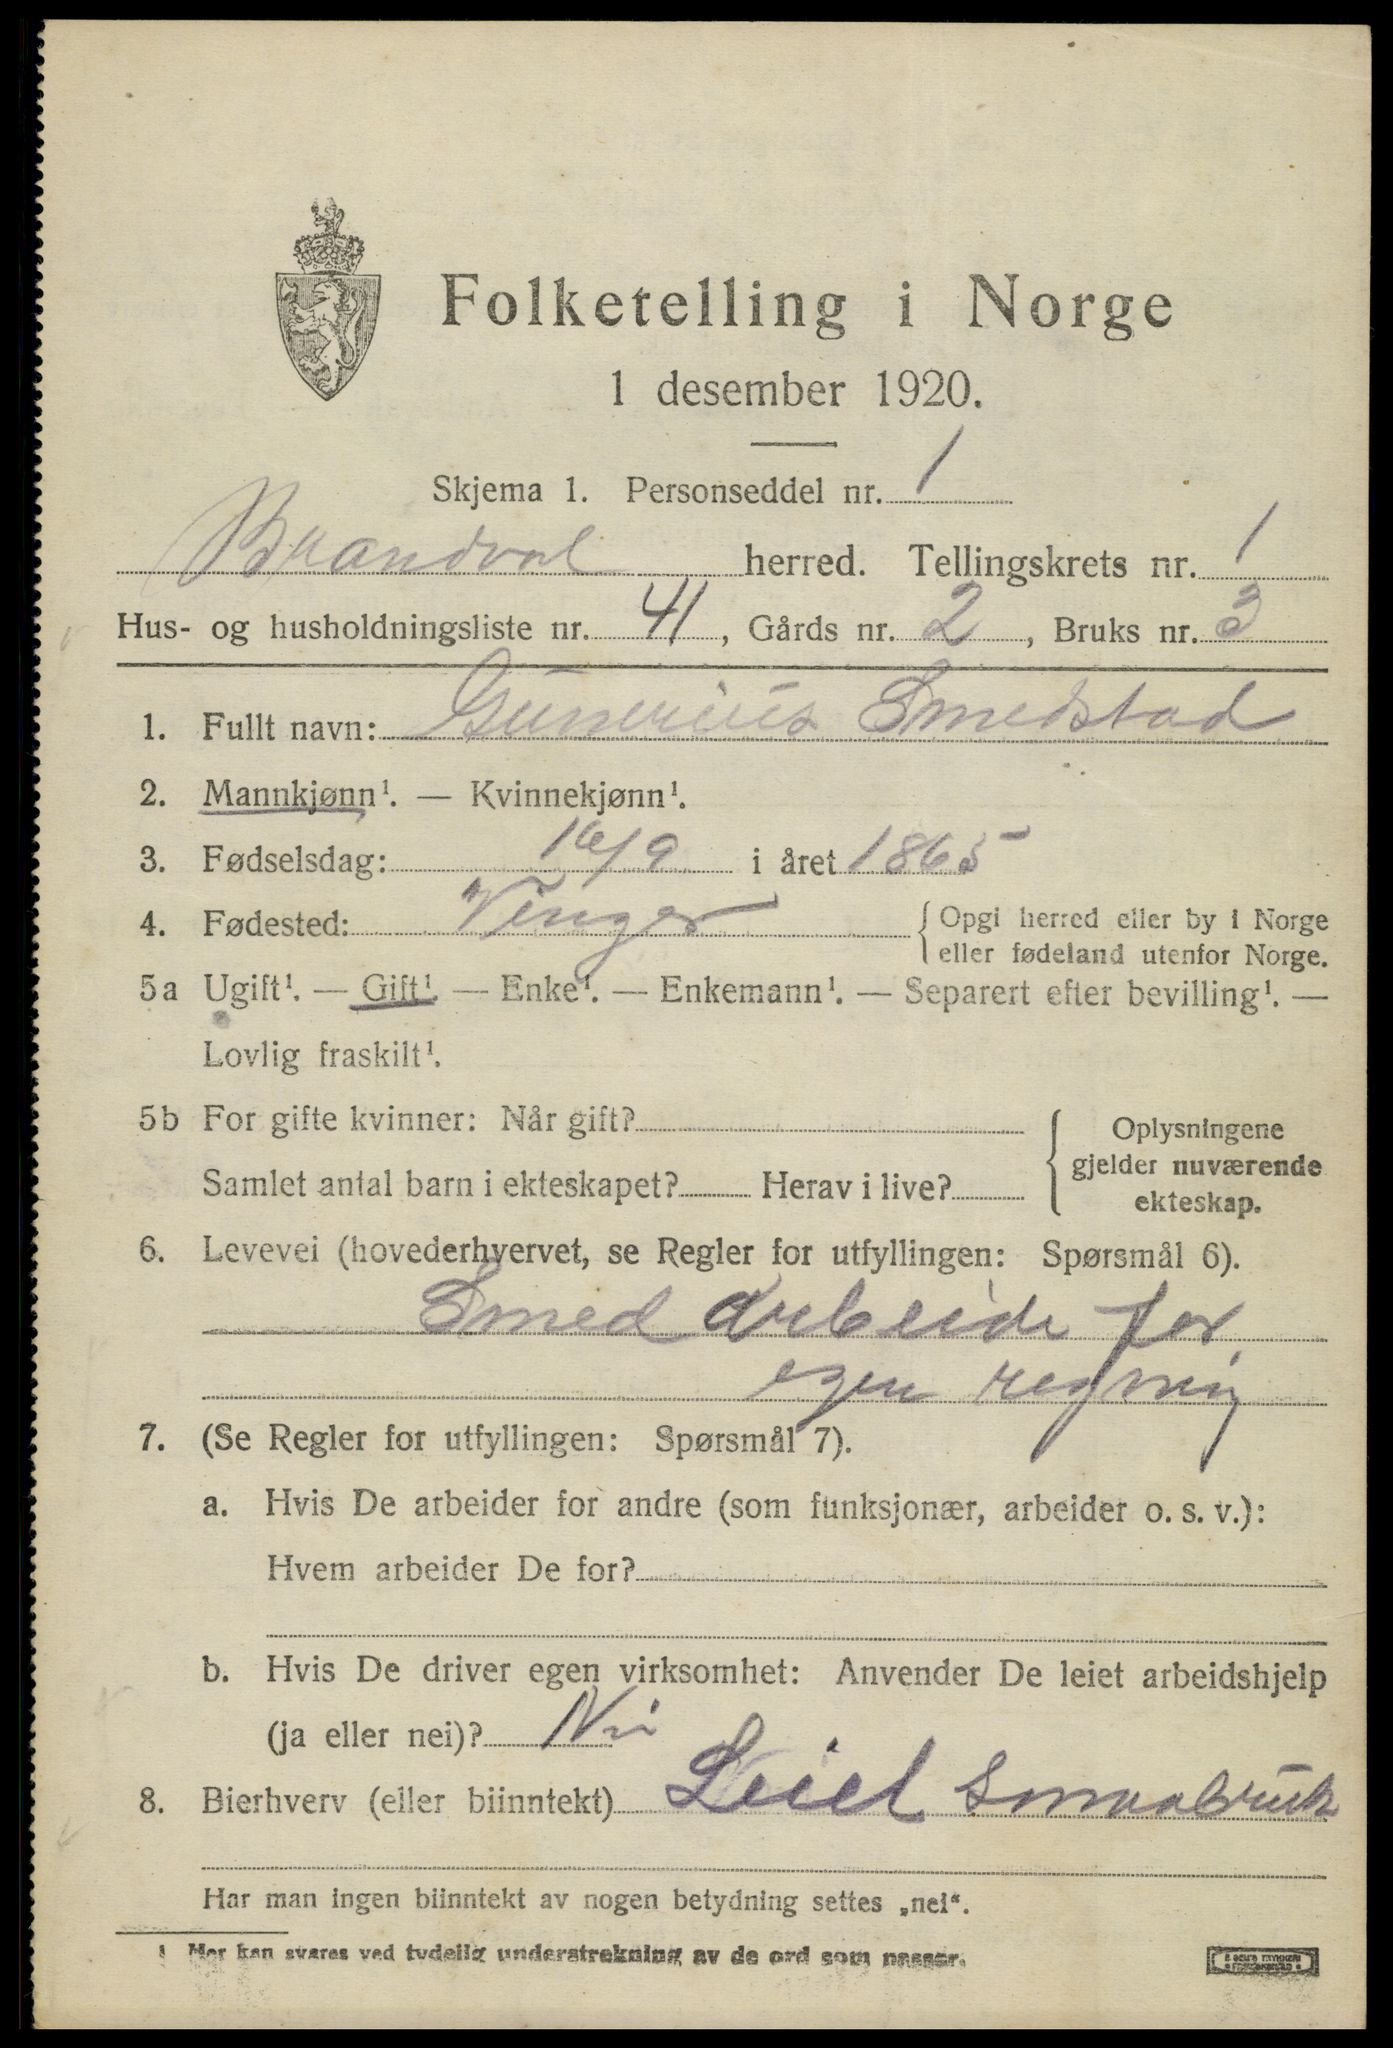 Folketelling i Norge
1 desember 1920.
Skjema 1. Personseddel nr. 1
Brandval herred. Tellingskrets nr. 1
Hus- og husholdningsliste nr. 41, Gårds nr. 2, Bruks nr. 3
1. Fullt navn: Gunerius Smedstad
2. Mannkjønn¹. — Kvinnekjønn¹.
3. Fødselsdag: 16/9 i året 1865
4. Fødested: Vinger { Opgi herred eller by i Norge
eller fødeland utenfor Norge.
5a Ugift¹. — Gift¹. — Enke¹. — Enkemann¹. — Separert efter bevilling¹. —
Lovlig fraskilt¹.
5b For gifte kvinner: Når gift?
Samlet antal barn i ekteskapet? Herav i live?
{ Oplysningene
gjelder nuværende
ekteskap.
6. Levevei (hovederhvervet, se Regler for utfyllingen: Spørsmål 6).
Smed arbeide for
egen regning
7. (Se Regler for utfyllingen: Spørsmål 7).
a. Hvis De arbeider for andre (som funksjonær, arbeider o. s. v.):
Hvem arbeider De for?
b. Hvis De driver egen virksomhet: Anvender De leiet arbeidshjelp
(ja eller nei)? Nei
8. Bierhverv (eller biinntekt) Leiet Smaabruk
Har man ingen biinntekt av nogen betydning settes „nei“.
¹ Her kan svares ved tydelig understrekning av de ord som passer.